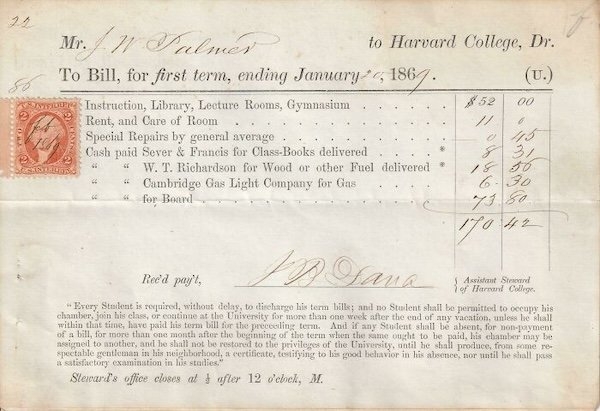 22
Mr. J W Palmer to Harvard College, Dr.
To Bill, for first term, ending January 20, 1869. (U.)
86
Instruction, Library, Lecture Rooms, Gymnasium $52 00
Rent, and Care of Room 11 0
Special Repairs by general average 0 45
Cash paid Sever & Francis for Class-Books delivered * 8 31
" " W. T. Richardson for Wood or other Fuel delivered * 18 56
" " Cambridge Gas Light Company for Gas 6.30
" " for Board 73 80
170.42
Rec'd pay't, J B Dana
Assistant Steward
of Harvard College.
"Every Student is required, without delay, to discharge his term bills; and no Student shall be permitted to occupy his
chamber, join his class, or continue at the University for more than one week after the end of any vacation, unless he shall
within that time, have paid his term bill for the preceeding term. And if any Student shall be absent, for non-payment
of a bill, for more than one month after the beginning of the term when the same ought to be paid, his chamber may be
assigned to another, and he shall not be restored to the privileges of the University, until he shall produce, from some re-
spectable gentleman in his neighborhood, a certificate, testifying to his good behavior in his absence, nor until he shall pass
a satisfactory examination in his studies."
Steward's office closes at ½ after 12 o'clock, M.